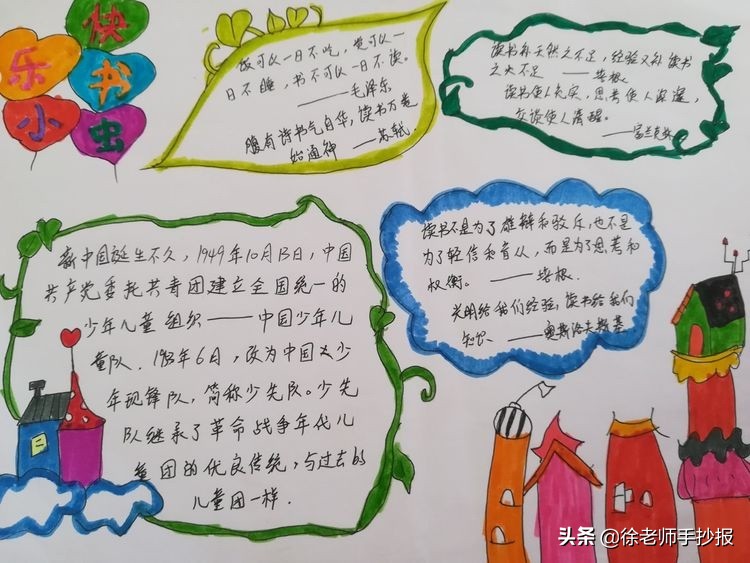 快
乐
书
小
虫
饭可以一日不吃，觉可以一
日不睡，书不可以一日不读。
——毛泽东
腹有诗书气自华，读书万卷
始通神 ——苏轼.
读书补天然之不足，经验又补读书
之不足 ——培根
读书使人充实，思考使人深邃，
交谈使人清醒。
——富兰克林
读书不是为了雄辩和驳斥，也不是
为了轻信和盲从，而是为了思考和
权衡。 ——培根
光明给我们经验，读书给我们
知识。 ——奥斯洛夫斯基
新中国诞生不久，1949年10月13日，中国
共产党委托共青团建立全国统一的
少年儿童组织——中国少年儿
童队. 1953年6月，改为中国少
年现锋队，简称少先队。少先
队继承了革命战争年代儿
童团的优良传统，与过去的
儿童团一样.
头条 @徐老师手抄报